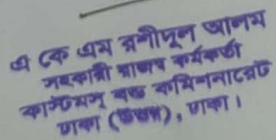 এ কে এম রশীদুল আলম
সহকারী রাজস্ব কর্মকর্তা
কাস্টমস্ বন্ড কমিশনারেট
ঢাকা (উত্তর), ঢাকা।